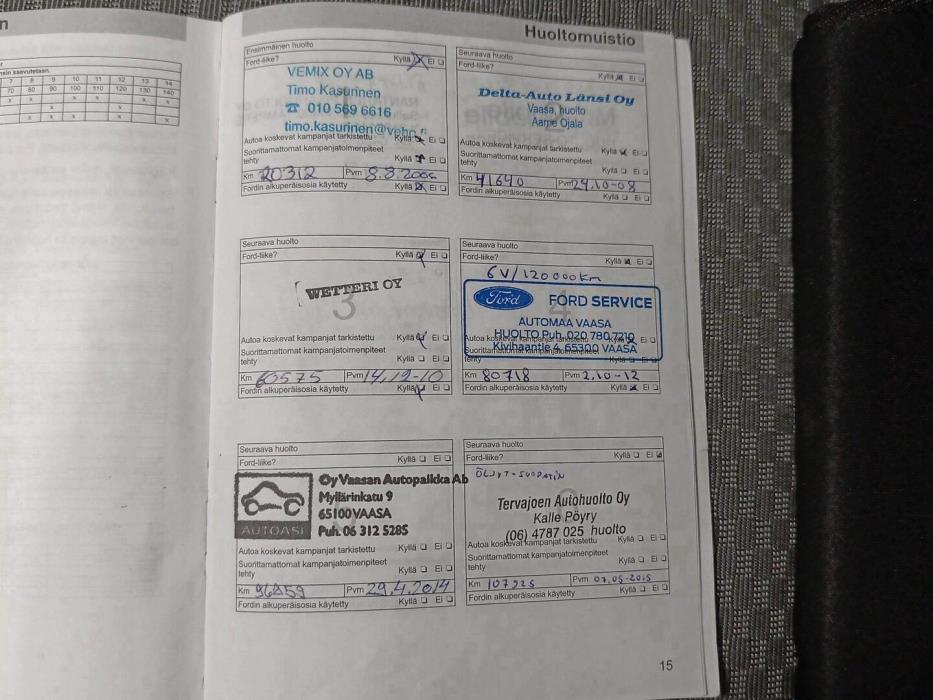 n
r
nsin saavutetaan.
7 8 9 10 11 12 13 14
70 80 90 100 110 120 130 140
x x x x x
x x x x
Huoltomuistio
Ensimmäinen huolto
Ford-liike? Kyllä Ei
VEMIX OY AB
Timo Kasurinen
☎ 010 569 6616
timo.kasurinen@veho.fi
Autoa koskevat kampanjat tarkistettu Kyllä Ei
Suorittamattomat kampanjatoimenpiteet
tehty Kyllä Ei
Km 20312 Pvm 8.8.2006
Fordin alkuperäisosia käytetty Kyllä Ei
Seuraava huolto
Ford-liike? Kyllä Ei
Delta-Auto Länsi Oy
Vaasa, huolto
Aarne Ojala
Autoa koskevat kampanjat tarkistettu Kyllä Ei
Suorittamattomat kampanjatoimenpiteet
tehty Kyllä Ei
Km 41640 Pvm 29.10-08
Fordin alkuperäisosia käytetty Kyllä Ei
Seuraava huolto
Ford-liike? Kyllä Ei
WETTERI OY
3
Autoa koskevat kampanjat tarkistettu Kyllä Ei
Suorittamattomat kampanjatoimenpiteet
tehty Kyllä Ei
Km 60575 Pvm 14.10-10
Fordin alkuperäisosia käytetty Kyllä Ei
Seuraava huolto
Ford-liike? Kyllä Ei
6V/120000km
Ford FORD SERVICE
4
AUTOMAA VAASA
HUOLTO Puh. 020 780 7210
Autoa koskevat kampanjat tarkistettu Kyllä Ei
Kivihaantie 4, 65300 VAASA
Suorittamattomat kampanjatoimenpiteet
tehty Kyllä Ei
Km 80718 Pvm 2.10-12
Fordin alkuperäisosia käytetty Kyllä Ei
Seuraava huolto
Ford-liike? Kyllä Ei
AUTOASI
Oy Vaasan Autopaikka Ab
Myllärinkatu 9
65100 VAASA
Puh. 06 312 5285
Autoa koskevat kampanjat tarkistettu Kyllä Ei
Suorittamattomat kampanjatoimenpiteet
tehty Kyllä Ei
Km Pvm 29.4.2014
Fordin alkuperäisosia käytetty Kyllä Ei
Seuraava huolto
Ford-liike? Kyllä Ei
ÖLJYT+SUODATIN
Tervajoen Autohuolto Oy
Kalle Pöyry
(06) 4787 025 huolto
Autoa koskevat kampanjat tarkistettu Kyllä Ei
Suorittamattomat kampanjatoimenpiteet
tehty Kyllä Ei
Km 107925 Pvm 07.05-2015
Fordin alkuperäisosia käytetty Kyllä Ei
15